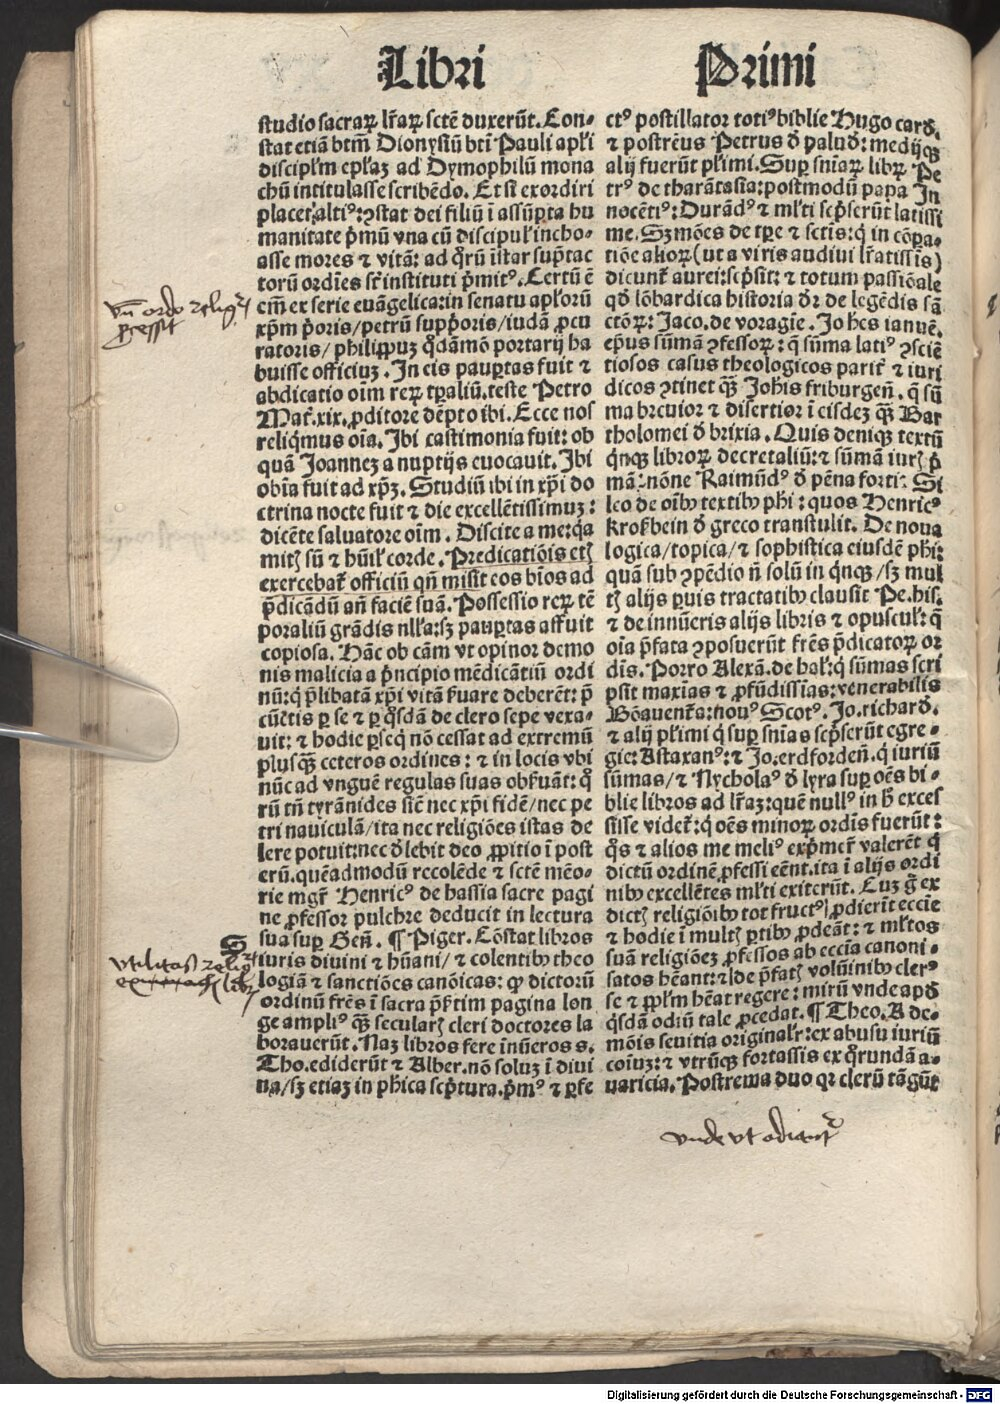 Libri Primi
studio sacraꝝ lr̄aꝝ sctē duxerūt. Con-
stat etiā btm̄ Dionysiū bti Pauli apl̄i
discipl̄m ep̄laȝ ad Dymophilū mona
chū intitulasse scribēdo. Et si exordiri
placet altiꝰ: ꝯstat dei filiū ī assūpta hu
manitate p̄mū vna cū discipul' incho-
asse mores & vitā: ad qͦrū īstar sup̄tac
torū ordīes sr̄t instituti p̄mitꝰ. Certū ē
em̄ ex serie euāgelica: in senatu apl̄orū
xp̄m p̄oris / petrū supp̄oris / iudā ꝓcu
ratoris / philippuȝ qͦdāmō portarij ha
buisse officiuȝ. In eis pauꝑtas fuit &
abdicatio oīm reꝝ tꝑaliū. teste Petro
Mat̄. xix. ꝓditore dēpto ibi. Ecce nos
reliq̄mus oīa. Ibi castimonia fuit: ob
quā Joanneȝ a nuptijs euocauit. Ibi
obīa fuit ad xp̄ȝ. Studiū ibi in xp̄i do
ctrina nocte fuit & die excellētissimuȝ:
dicēte saluatore oīm. Discite a me: qa
mitꝭ sū & hūil' corde. Predicatiōis etꝭ
exercebat̄ officiū qn̄ misit eos bīos ad
p̄dicādū an̄ faciē suā. Possessio reꝝ tē
poraliū grādis nll'a: sȝ pauꝑtas affuit
copiosa. Hāc ob cām vt opinor demo
nis malicia a p̄ncipio mēdicātiū ordi
nū: q̄ p̄libatā xp̄i vitā s̄uare deberēt: p̄
cūctis ꝑ se & ꝑ qͦsdā de clero sepe vexa-
uit: & hodie ꝑseq̄ nō cessat ad extremū
plusq̄ȝ ceteros ordines: & in locis vbi
nūc ad vnguē regulas suas obs̄uāt: qͦ
rū tn̄ tyrānides sic̄ nec xp̄i fidē / nec pe
tri nauiculā / ita nec religiōes istas de
lere potuit: nec d̄lebit deo ꝓpitio ī post
erū. quēadmodū recolēde & sctē mēo-
rie mgr̄ Henricꝰ de hassia sacre pagi
ne ꝓfessor pulchre deducit in lectura
sua suꝑ Gen̄. ¶ Piger. Cōstat libros
iuris diuini & hūani / & colentibꝰ theo
logiā & sanctiōes canōicas: qͥ dictorū
ordinū frēs ī sacra p̄s̄tim pagina lon
ge ampliꝰ q̄ȝ secularꝭ cleri doctores la
borauerūt. Naȝ libros fere īnūeros s.
Tho. ediderūt & Alber. nō soluȝ ī diui
na / sȝ etiaȝ in phīca sc̄ptura. p̄mꝰ & ꝑfe
ctꝰ postillator totiꝰ biblie Hugo card̄.
& postrēus Petrus d̄ palud̄: medijqȝ
alij fuerūt pl̄imi. Suꝑ sn̄iaꝝ libꝝ Pe
trꝰ de tharātasia: postmodū papa In
nocētiꝰ: Durādꝰ & ml̄ti sc̄pserūt latissi
me. Sȝmōes de tp̄e & sctis: q̄ in cōpa-
tiōe alioꝝ (ut a viris audiui lr̄atissīs)
dicunt̄ aurei: sc̄psit: & totum passiōale
qd̄ lōbardica historia dr̄ & de legēdis sā
ctōꝝ: Jaco. de voragīe. Jo hēs ianuē.
ep̄us sūmā ꝯfessoꝝ: q̄ sūma latiꝰ ꝯsciē
tiosos casus theologicos parit̄ & iuri
dicos ꝯtinet q̄ȝ Johīs friburgen̄. q̄ sū
ma breuior & disertior ī eisdeȝ q̄ȝ Bar
tholomei d̄ brixia. Quis deniqȝ textū
q̄nqȝ libroꝝ decretaliū: & sūmā iurꝭ p̄
mā: nōne Raimūdꝰ d̄ pēna forti: Si
leo de oībꝰ textibꝰ phī: quos Henricꝰ
krosbein d̄ greco transtulit. De noua
logica / topica / & sophistica eiusdē phī:
quā sub ꝯpēdio n̄ solū in q̄nqȝ / sȝ mul
tꝭ alijs ꝑuis tractatibꝰ clausit Pe. his.
& de innūeris alijs libris & opuscul': q̄
oīa p̄fata ꝯposuerūt frēs p̄dicatoꝝ or
dīs. Porro Alexā. de hal': q̄ sūmas scri
psit maxīas & ꝓfūdissīas: venerabilis
Bōauent̄a: nouꝰ Scotꝰ. Jo. richard̄.
& alij pl̄imi q̄ suꝑ sn̄ias sc̄pserūt egre-
gie: Astaxanꝰ: & Jo. erdforden̄. q̄ iuriū
sūmas / & Nycholaꝰ d̄ lyra suꝑ oēs bi-
blie libros ad lr̄aȝ: quē nullꝰ in h̄ exces
sisse videt̄: q̄ oēs minoꝝ ordīs fuerūt:
qͦs & alios me meliꝰ exp̄mer̄ valerēt q̄
dictū ordinē ꝓfessi eēnt. ita ī alijs ordi
nibꝰ excellētes ml̄ti exiterūt. Euȝ ḡ ex
dictꝭ religiōibꝰ tot fructꝰ ꝓdierīt eccīe
& hodie ī multꝭ ꝑtibꝰ ꝓdeāt: & ml̄tos
suā religiōeȝ ꝓfessos ab eccīa canoni-
satos hēant: & de p̄fatꝭ volūinibꝰ clerꝰ
se & ppl̄m hēat regere: mirū vnde apd̄
qͦsdā odiū tale ꝓcedat. ¶ Theo. A de-
mōis seuitia originalr̄: ex abusu iuriū
coīuȝ: & vtrūqȝ fortassis ex qͦrundā a-
uaricia. Postrema duo qr clerū tāgūt
vn̄ ordo religꝭ
p̄cessit
vtilitas religꝭ
libꝭ
vnde vt odiant̄
Digitalisierung gefördert durch die Deutsche Forschungsgemeinschaft - DFG